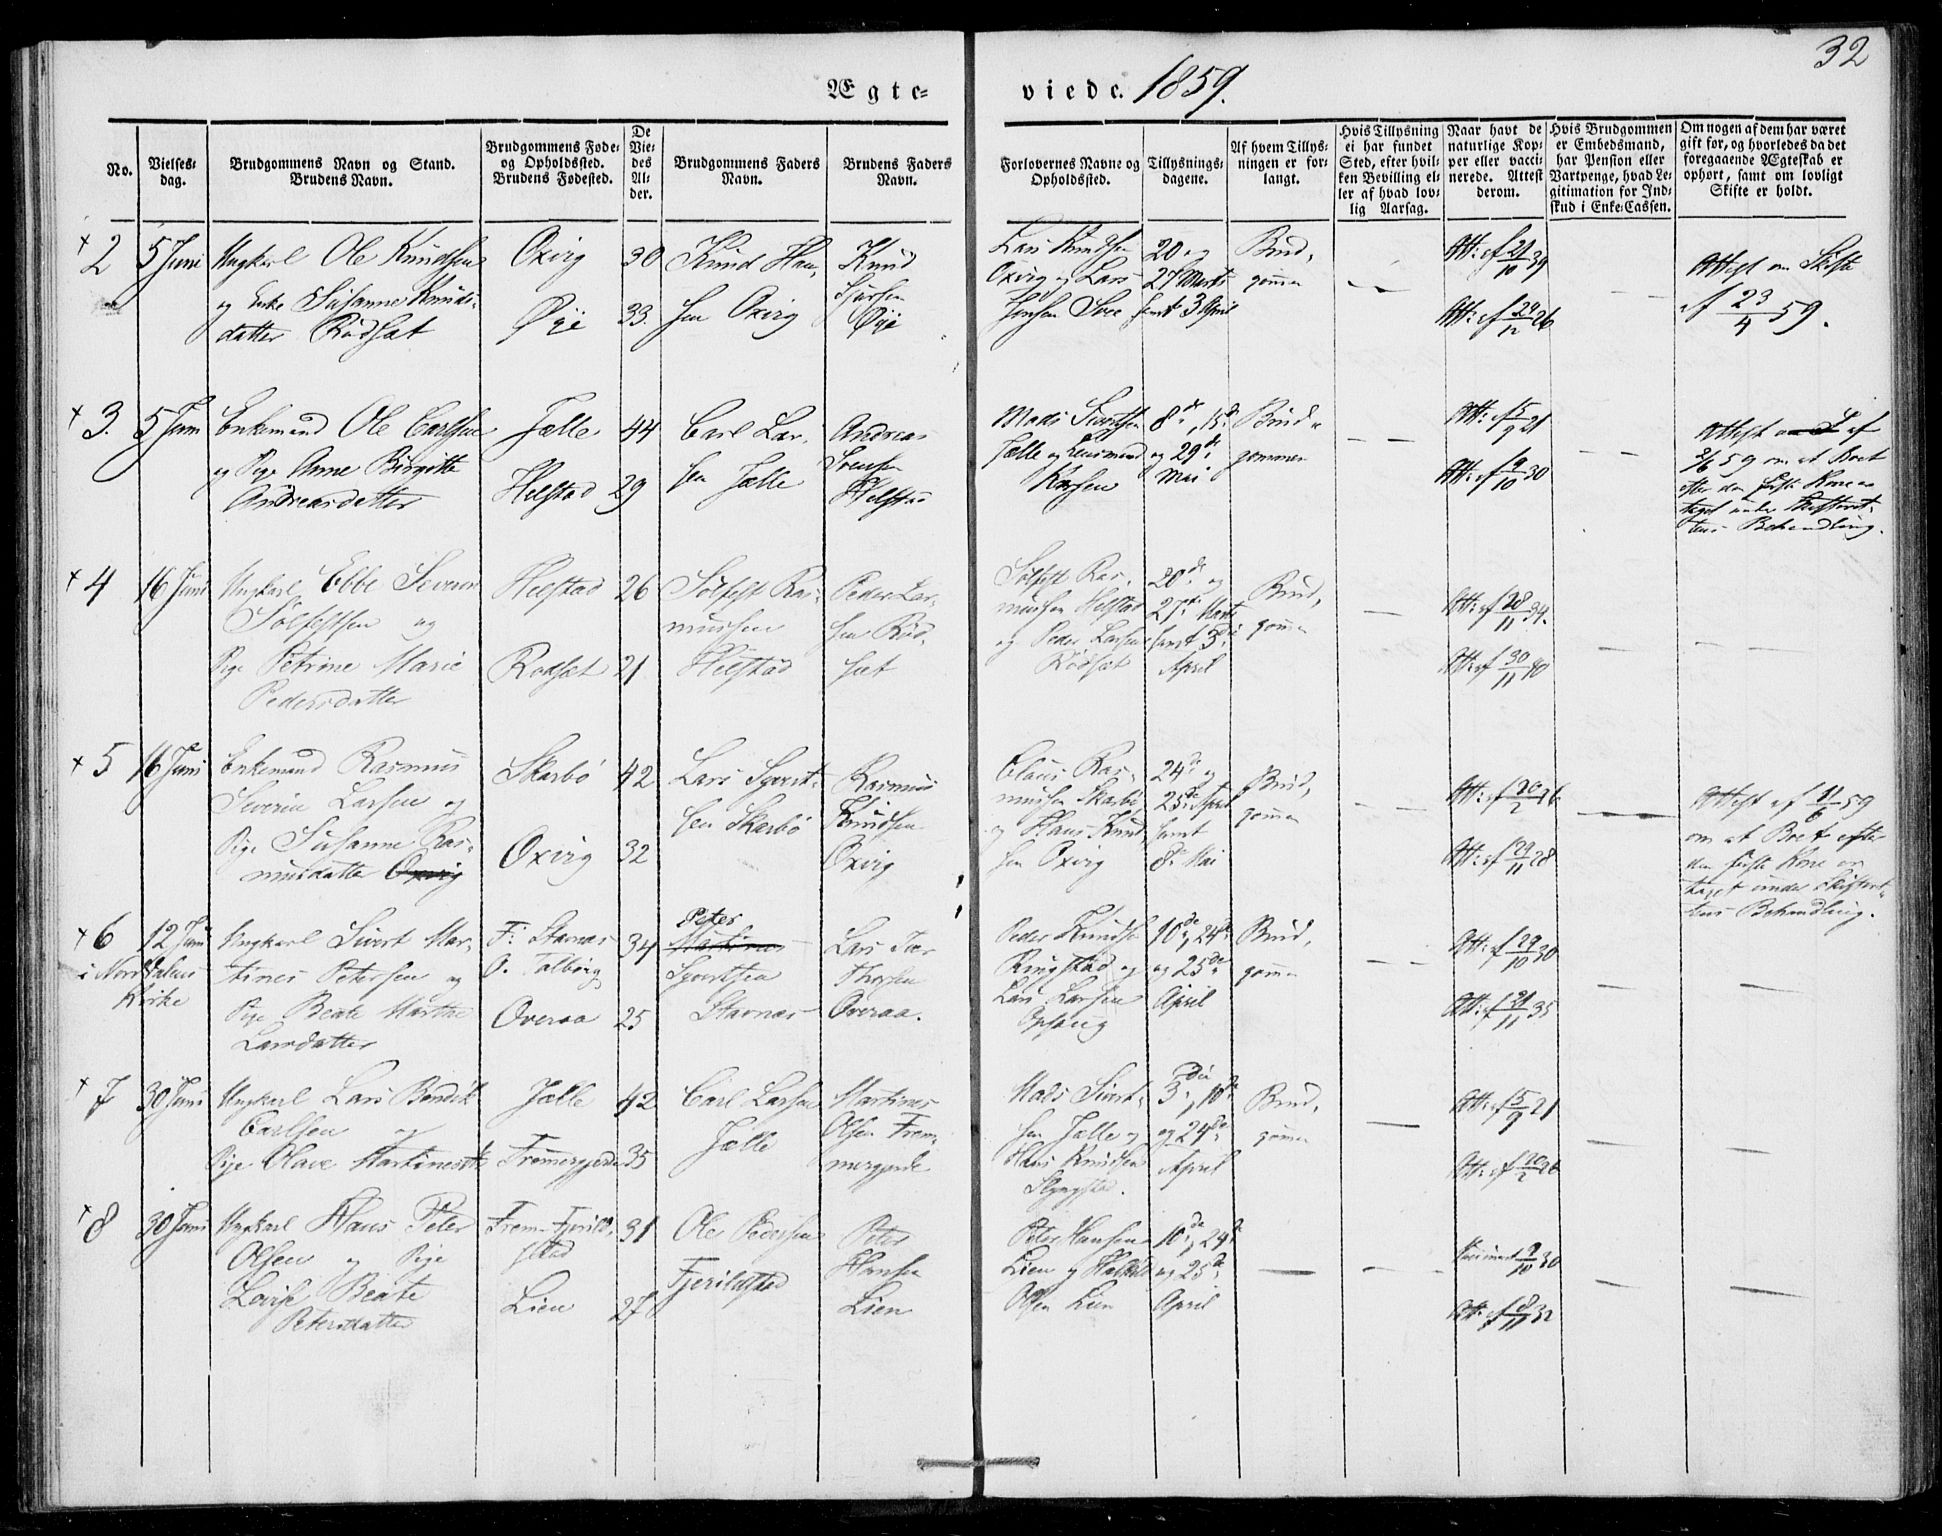 32
Ægte-
viede. 1859.
No.
Vielses-
dag.
Brudgommens Navn og Stand.
Brudens Navn.
Brudgommens Føde-
og Opholdssted.
Brudens Fødested.
De
Vie-
des
Al-
der.
Brudgommens Faders
Navn.
Brudens Faders
Navn.
Forlovernes Navne og
Opholdssted.
Tillysnings-
dagene.
Af hvem Tillys-
ningen er for-
langt.
Hvis Tillysning
ei har fundet
Sted, efter hvil-
ken Bevilling el-
ler af hvad lov-
lig Aarsag.
Naar havt de
naturlige Kop-
per eller vacci-
nerede. Attest
derom.
Hvis Brudgommen
er Embedsmand,
har Pension eller
Vartpenge, hvad Le-
gitimation for Ind-
skud i Enke-Cassen.
Om nogen af dem har været
gift før, og hvorledes da det
foregaaende Ægteskab er
ophørt, samt om lovligt
Skifte er holdt.
+ 2
5 Juni
Ungkarl Ole Knudsen
og Enke Susanne Knuds-
datter Rødsæt
Oxvig
Øye
30
33.
Knud Han-
sen Oxvig
Knud
Sjursen
Øye
Lars Knudsen
Oxvig og Lars
Jensen
20 og
27 Marts
samt 3 April
Brud-
gommen
Att: af 21/10 39
Att: af 29/12 26
Attest om Skifte
af 23/4 59.
+ 3.
5 Juni
Enkemand Ole Carlsen
og Pige Anne Birgitte
Andreasdatter
Jælle
Helstad
44
29
Carl Lar-
sen Jælle
Andreas
Svensen
Helstad
Mads Sivertsen
Jælle og Lensmand
8de, 15de
og 29de
Mai
Brud-
gommen
Att: af 5/9 21
Att: af 9/10 30
Attest af
2/6 59 om at Boet
efter den første Kone er
taget under Skifteret-
tens Behandling.
+ 4
16 Juni
Ungkarl Ebbe Severin
Sølfestsen og
Pige Petrine Marie
Pedersdatter
Helstad
Rødsæt
26
21
Sølfest Ras-
mussen
Helstad
Peder Lar-
sen Rød-
sæt
Sølfest Ras-
mussen Helstad
og Peder Larsen
Rødsæt
20de og
27de Marts
samt 3die
April
Brud-
gommen
Att: af 28/11 34.
Att: af 30/11 40
+ 5
16 Juni
Enkemand Rasmus
Severin Larsen og
Pige Susanne Ras-
musdatter Oxvig
Skarbø
Oxvig
42
32
Lars Syvert-
sen Skarbø
Rasmus
Knudsen
Oxvig
Claus Ras-
mussen Skarbø
og Hans Knud-
sen Oxvig
24de og
25de April
samt
8de Mai
Brud-
gommen
Att: af 20/2 26
Att: af 29/11 28
Attest af 11/6 59
om at Boet efter
den første Kone er
taget under Skifteret-
tens Behandling.
+ 6
12 Juni
i Norddalens
Kirke
Ungkarl Sivert Mar-
tines Petersen og
Pige Beate Marthe
Larsdatter
F: Stavnæs
O. Talberg
Overaa
34
25
Peter
Martines
Syvertsen
Stavnæs
Lars Tor-
Overaa.
Peder Knudsen
Ringstad og
Lars Larsen
Ophaug
10de, 24de
og 25de
April
Brud-
gommen
Att: af 29/10 30
Att: af 21/11 35
+ 7
30 Juni
Ungkarl Lars Bendik
Carlsen og
Pige Olave Martinesdtr
Jælle
Fremmergjerde
42
35
Carl Larsen
Jælle
Martines
Olsen Frem-
mergjerde
Mads Sivert-
sen Jælle og
Hans Knudsen
3die, 10de
og 24de
April
Brud-
gommen
Att: af 5/9 21
Att: af 20/2 26
+ 8
30 Juni
Ungkarl Hans Peter
Olsen og Pige
Lovise Beate
Petersdatter
Frem-Fjerild-
stad
Lien
31
27
Ole Pedersen
Fjerildstad
Peter
Hansen
Lien
Peter Hansen
Lien og
Olsen Lien
10de, 24de
og 25de
April
9/10 30
Att: af 8/11 32